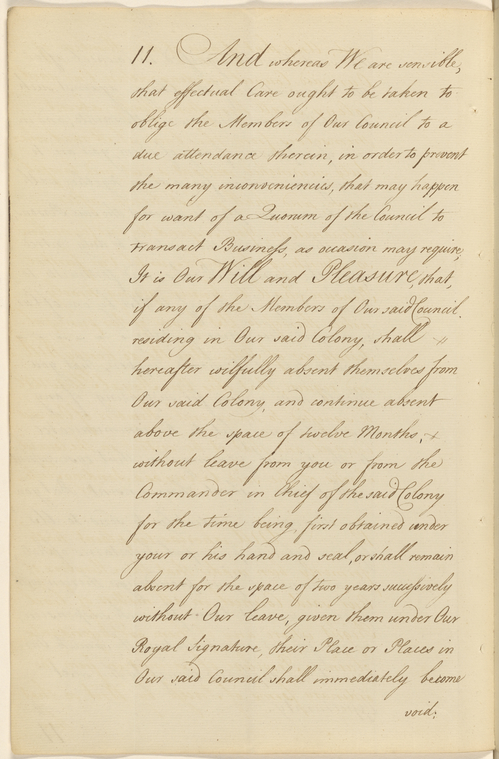 11. And whereas We are sensible,
that effectual Care ought to be taken to
oblige the Members of Our Council to a
due attendance therein, in order to prevent
the many inconveniencies, that may happen
for want of a Quorum of the Council to
transact Business, as occasion may require,
It is Our Will and Pleasure, that,
if any of the Members of Our said Council
residing in Our said Colony, shall "
hereafter wilfully absent themselves from
Our said Colony, and continue absent
above the space of twelve Months, +
without leave from you or from the
Commander in Chief of the said Colony
for the time being, first obtained under
your or his hand and seal, or shall remain
absent for the space of two years successively
without Our leave, given them under Our
Royal Signature, their Place or Places in
Our said Council shall immediately become
void;